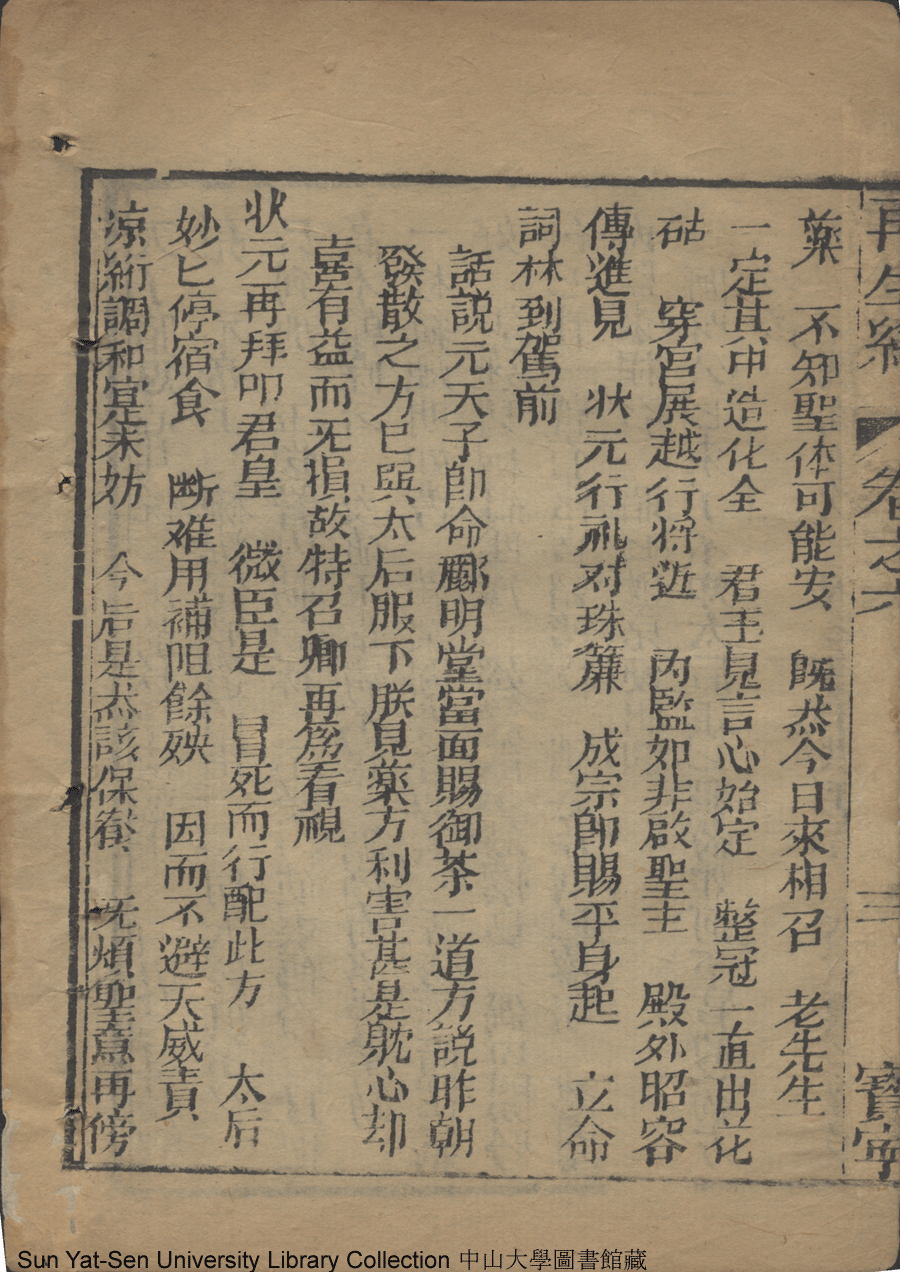 再生緣 卷之六 三 寶寧
藥 不知聖体可能安 既然今日來相召 老先生
一定其中造化全 君王見言心始定 整冠一直出花
砧 穿宮展越行將近 內監如非啟聖主 殿外昭容
傳進見 状元行礼对珠簾 成宗即賜平身起 立命
詞林到駕前
話說元天子卽命酈明堂當面賜御茶一道方説昨朝
發散之方已與太后服下朕見藥方利害甚是躭心却
喜有益而无損故特召卿再為看視
状元再拜叩君皇 微臣是 冒死而行配此方 太后
妙匕停宿食 断难用補阻餘殃 因而不避天威責
凉絎調和寔未妨 今后是烝該保養 无煩聖意再傍
Sun Yat-Sen University Library Collection 中山大學圖書館藏